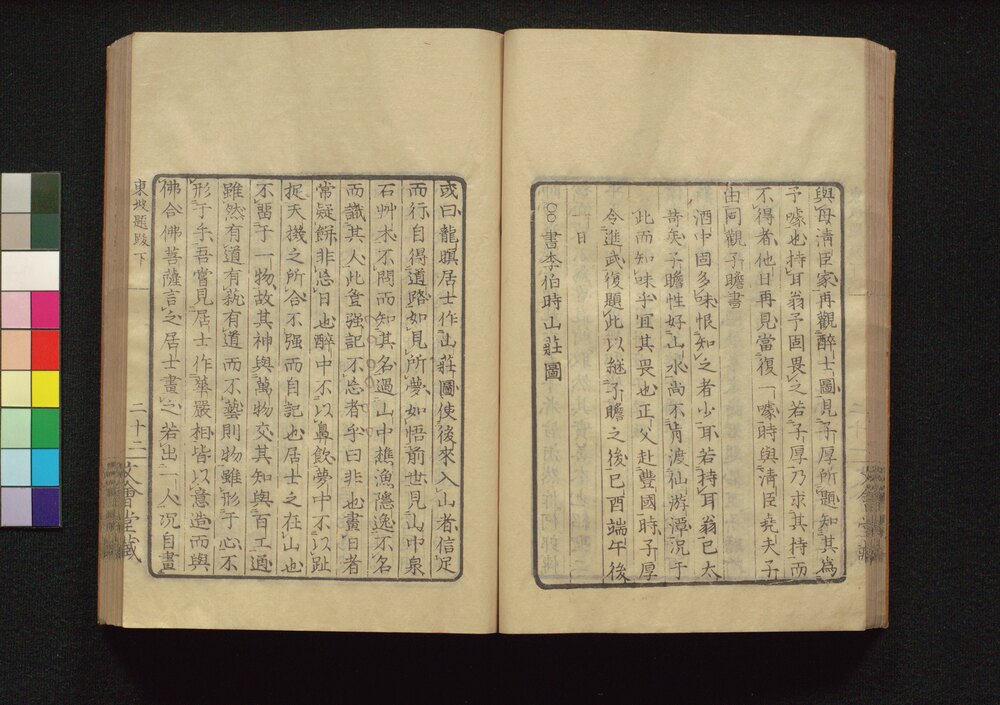 與毋清臣家再觀醉士圖見子厚所題知其為
予噱也持耳翁予固畏之若子厚乃求其持而
不得者他日再見當復一噱時與清臣堯夫子
由同觀子瞻書
酒中固多味恨知之者少耳若持耳翁已太
苛矣子瞻性好山水尚不肯渡仙游潭況于
此而知味乎宜其畏也正父赴豐國時子厚
令進武復題此以繼子瞻之後己酉端午後
一日
書李伯時山莊圖
或曰龍眠居士作山莊圖使後來入山者信足
而行自得道路如見所夢如悟前世見山中泉
石艸木不問而知其名遇山中樵漁隱逸不名
而識其人此豈强記不忘者乎曰非也畫日者
常疑餅非忘日也醉中不以鼻飲夢中不以趾
捉天機之所合不强而自記也居士之在山也
不畱于一物故其神與萬物交其知與百工通
雖然有道有執有道而不藝則物雖形于心不
形于手吾嘗見居士作華嚴相皆以意造而與
佛合佛菩薩言之居士畫之若出一人況自畫
東坡題跋下
二十二
堂藏